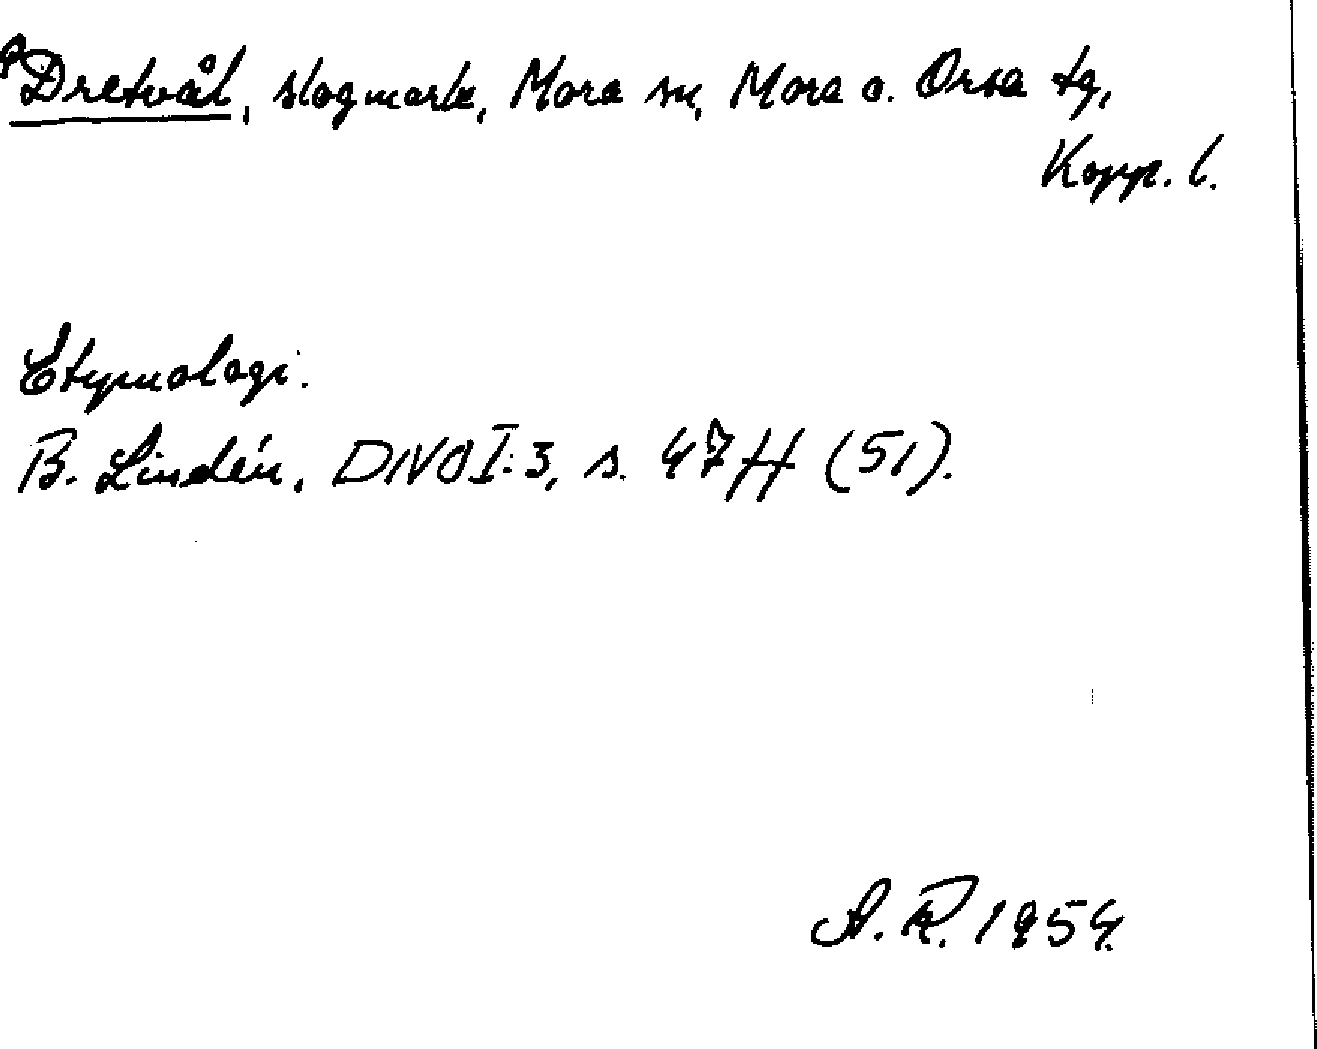 Dretvål, slogmark, Mora sn, Mora o. Orsa tg,
Kopp. l.
Etymologi.
B. Lindén, DNO I:3, s. 47 ff (51).
A. R. 1954.